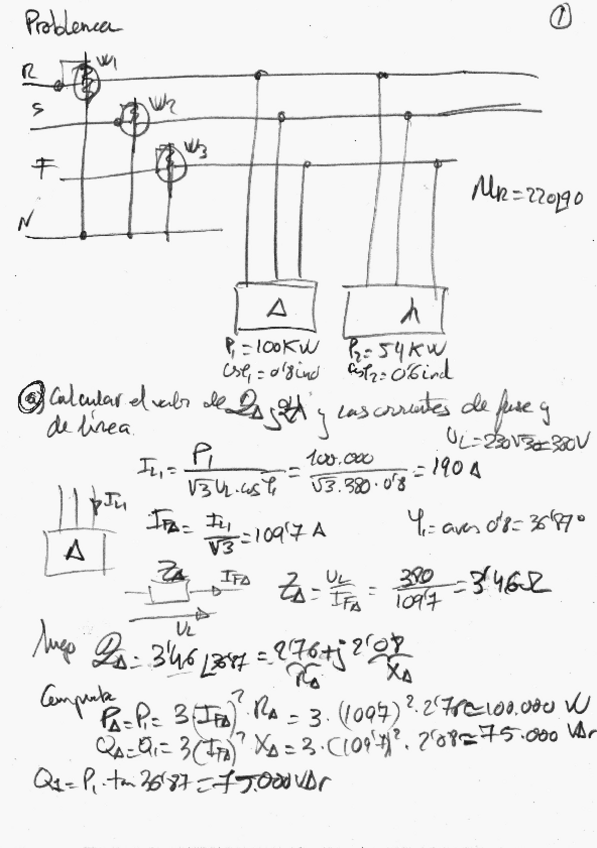 Problema
①
R
W1
S
W2
T
W3
N
U_R = 220∠90
Δ
λ
P1 = 100KW
cosφ1 = 0'8 ind
P2 = 54KW
cosφ2 = 0'6 ind
ⓐ Calcular el valor de Z_Δ y las corrientes de fase y
de línea.
U_L = 230√3 = 380V
I_L1 = P1 / (√3 U_L · cosφ1) = 100.000 / (√3 · 380 · 0'8) = 190 A
I_L1
Δ
I_FΔ = I_L1 / √3 = 109'7 A
φ1 = arcos 0'8 = 36'87º
Z_Δ
I_FΔ
U_L
Z_Δ = U_L / I_FΔ = 380 / 109'7 = 3'46 Ω
luego Z_Δ = 3'46 ∠36'87 = 2'76 + j 2'08
R_Δ
X_Δ
P_Δ = P1 = 3 (I_FΔ)² · R_Δ = 3 · (109'7)² · 2'76 = 100.000 W
Q_Δ = Q1 = 3 (I_FΔ)² X_Δ = 3 · (109'7)² · 2'08 = 75.000 VAr
Q1 = P1 · tan 36'87 = 75.000 VAr